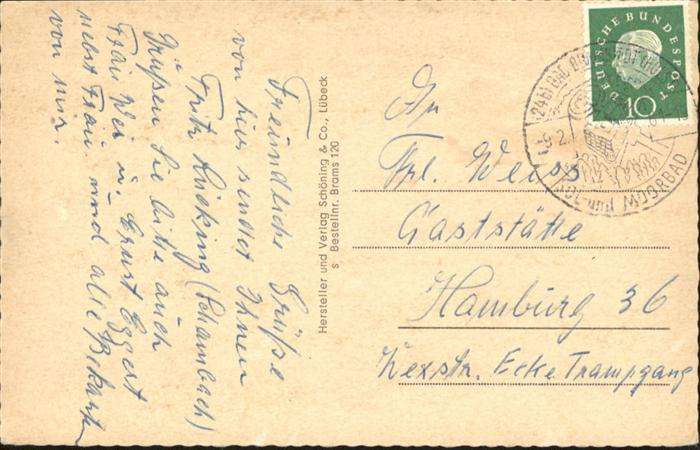 Freundliche Grüße
von hier sendet Ihnen
Fritz Kücking (Schambach)
Grüßen Sie bitte auch
Frau Wei u. Ernst Eggert
nebst Frau und alle Bekannten
von mir.
Hersteller und Verlag Schöning & Co., Lübeck
s Bestellnr. Brams 120
DEUTSCHE BUNDESPOST
10
(24b) BAD
MOORBAD
An
Frl. Weiss
Gaststätte
Hamburg 36
Kexstr. Ecke Trampgang